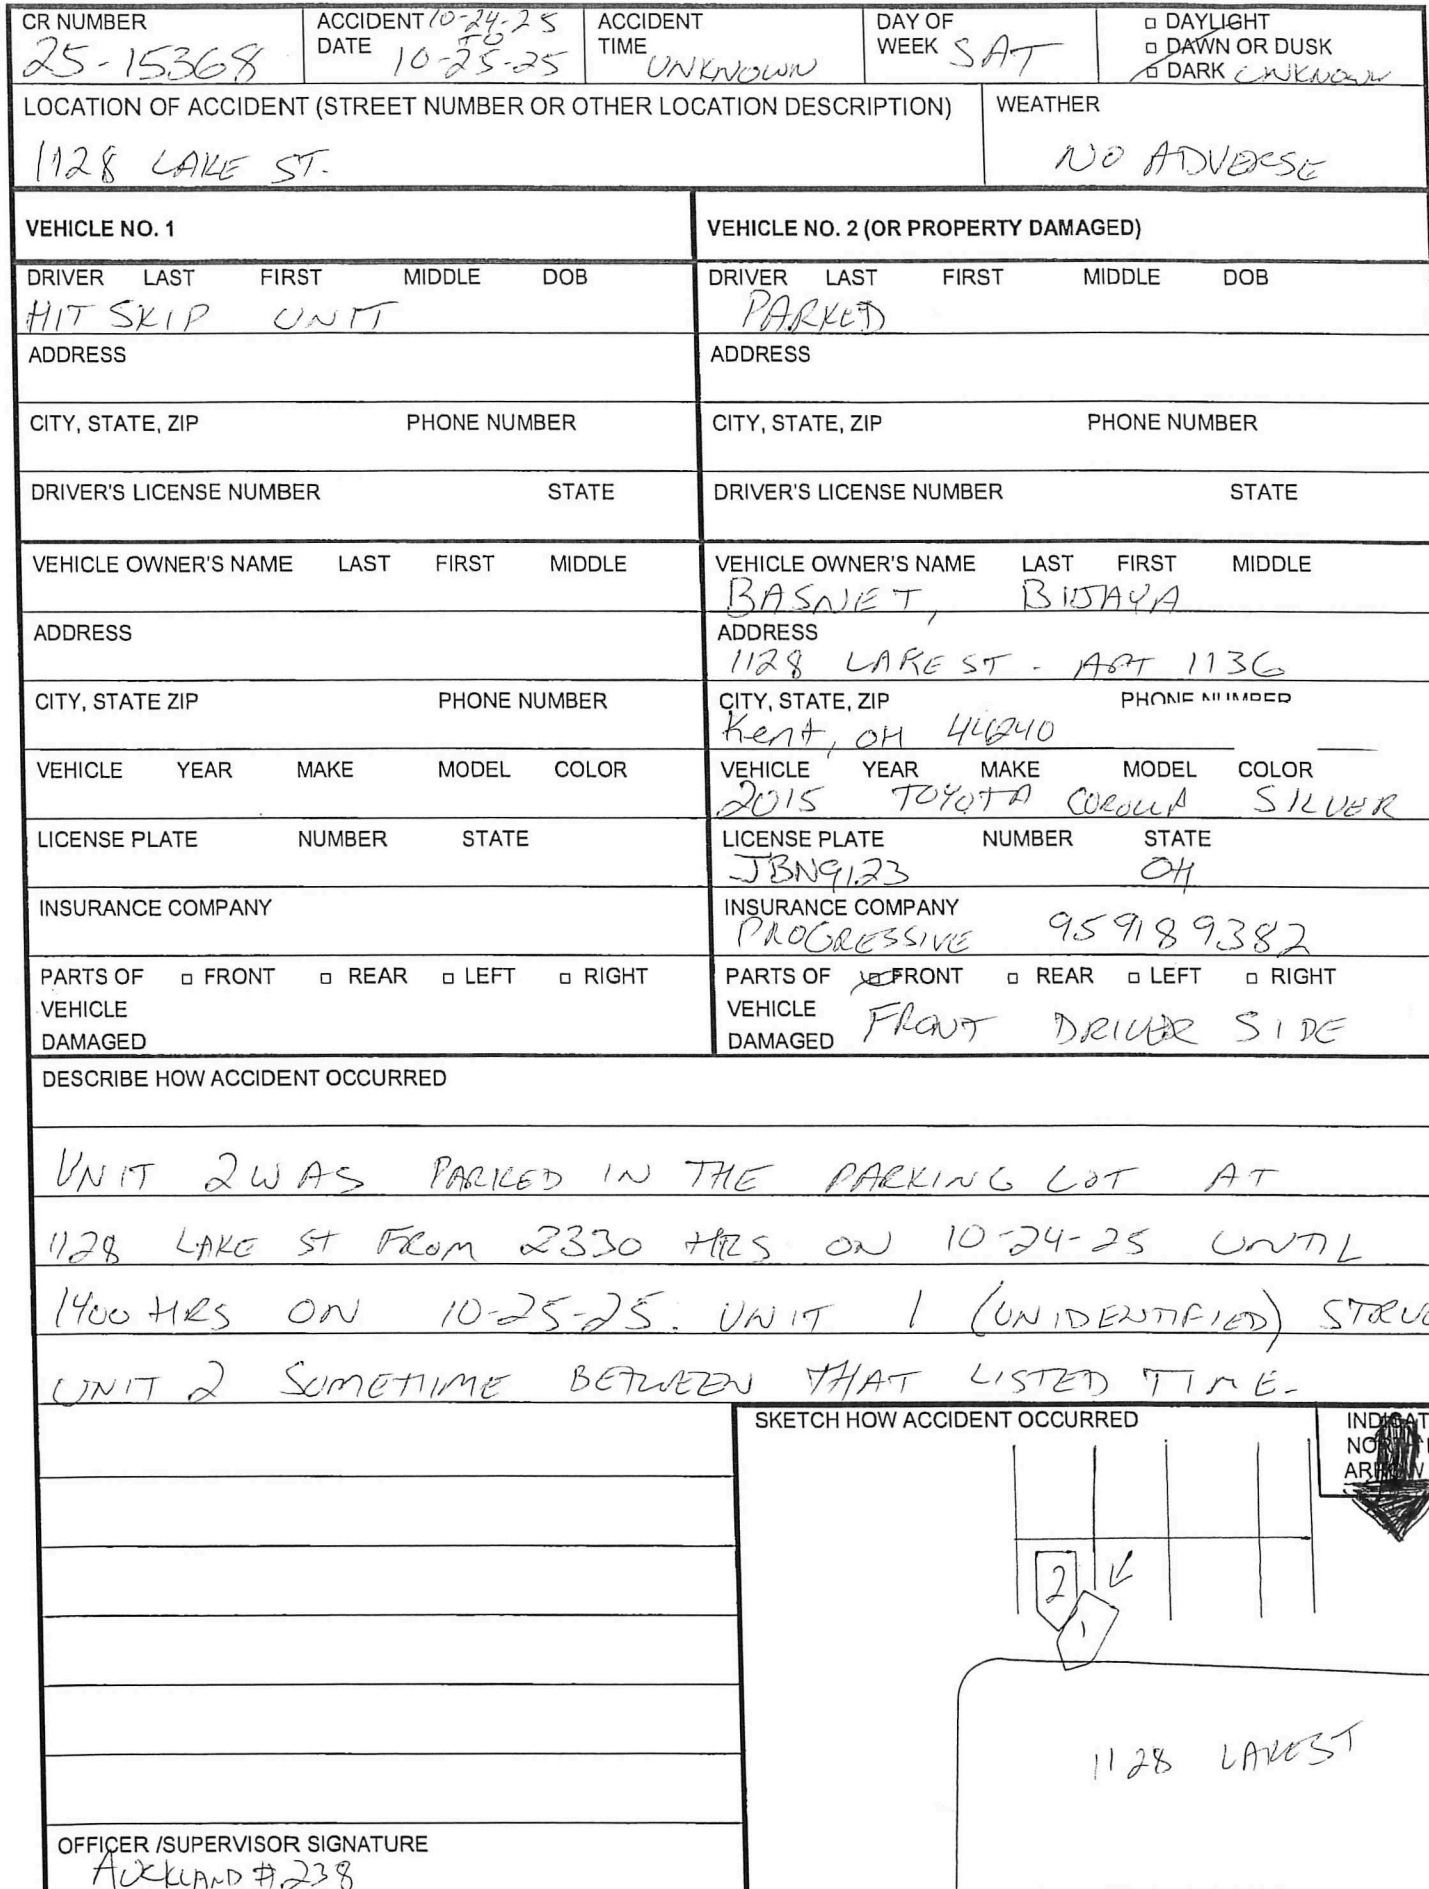 CR NUMBER
25-15368
ACCIDENT DATE 10-24-25 TO 10-25-25
ACCIDENT TIME UNKNOWN
DAY OF WEEK SAT
□ DAYLIGHT
□ DAWN OR DUSK
□ DARK UNKNOWN
LOCATION OF ACCIDENT (STREET NUMBER OR OTHER LOCATION DESCRIPTION)
1128 LAKE ST.
WEATHER
NO ADVERSE
VEHICLE NO. 1
DRIVER LAST FIRST MIDDLE DOB
HIT SKIP UNIT
ADDRESS
CITY, STATE, ZIP PHONE NUMBER
DRIVER'S LICENSE NUMBER STATE
VEHICLE OWNER'S NAME LAST FIRST MIDDLE
ADDRESS
CITY, STATE ZIP PHONE NUMBER
VEHICLE YEAR MAKE MODEL COLOR
LICENSE PLATE NUMBER STATE
INSURANCE COMPANY
PARTS OF □ FRONT □ REAR □ LEFT □ RIGHT
VEHICLE
DAMAGED
VEHICLE NO. 2 (OR PROPERTY DAMAGED)
DRIVER LAST FIRST MIDDLE DOB
PARKED
ADDRESS
CITY, STATE, ZIP PHONE NUMBER
DRIVER'S LICENSE NUMBER STATE
VEHICLE OWNER'S NAME LAST FIRST MIDDLE
BASNET, BIJAYA
ADDRESS
1128 LAKE ST - APT 1136
CITY, STATE, ZIP PHONE NUMBER
Kent, OH 44240
VEHICLE YEAR MAKE MODEL COLOR
2015 TOYOTA COROLLA SILVER
LICENSE PLATE NUMBER STATE
JBN9123 OH
INSURANCE COMPANY
PROGRESSIVE 959189382
PARTS OF □ FRONT □ REAR □ LEFT □ RIGHT
VEHICLE
DAMAGED FRONT DRIVER SIDE
DESCRIBE HOW ACCIDENT OCCURRED
UNIT 2 WAS PARKED IN THE PARKING LOT AT
1128 LAKE ST FROM 2330 HRS ON 10-24-25 UNTIL
1400 HRS ON 10-25-25. UNIT 1 (UNIDENTIFIED) STRUC
UNIT 2 SOMETIME BETWEEN THAT LISTED TIME.
SKETCH HOW ACCIDENT OCCURRED
INDICAT
NORTH
ARROW
2
1
1128 LAKE ST
OFFICER /SUPERVISOR SIGNATURE
AUCKLAND #238